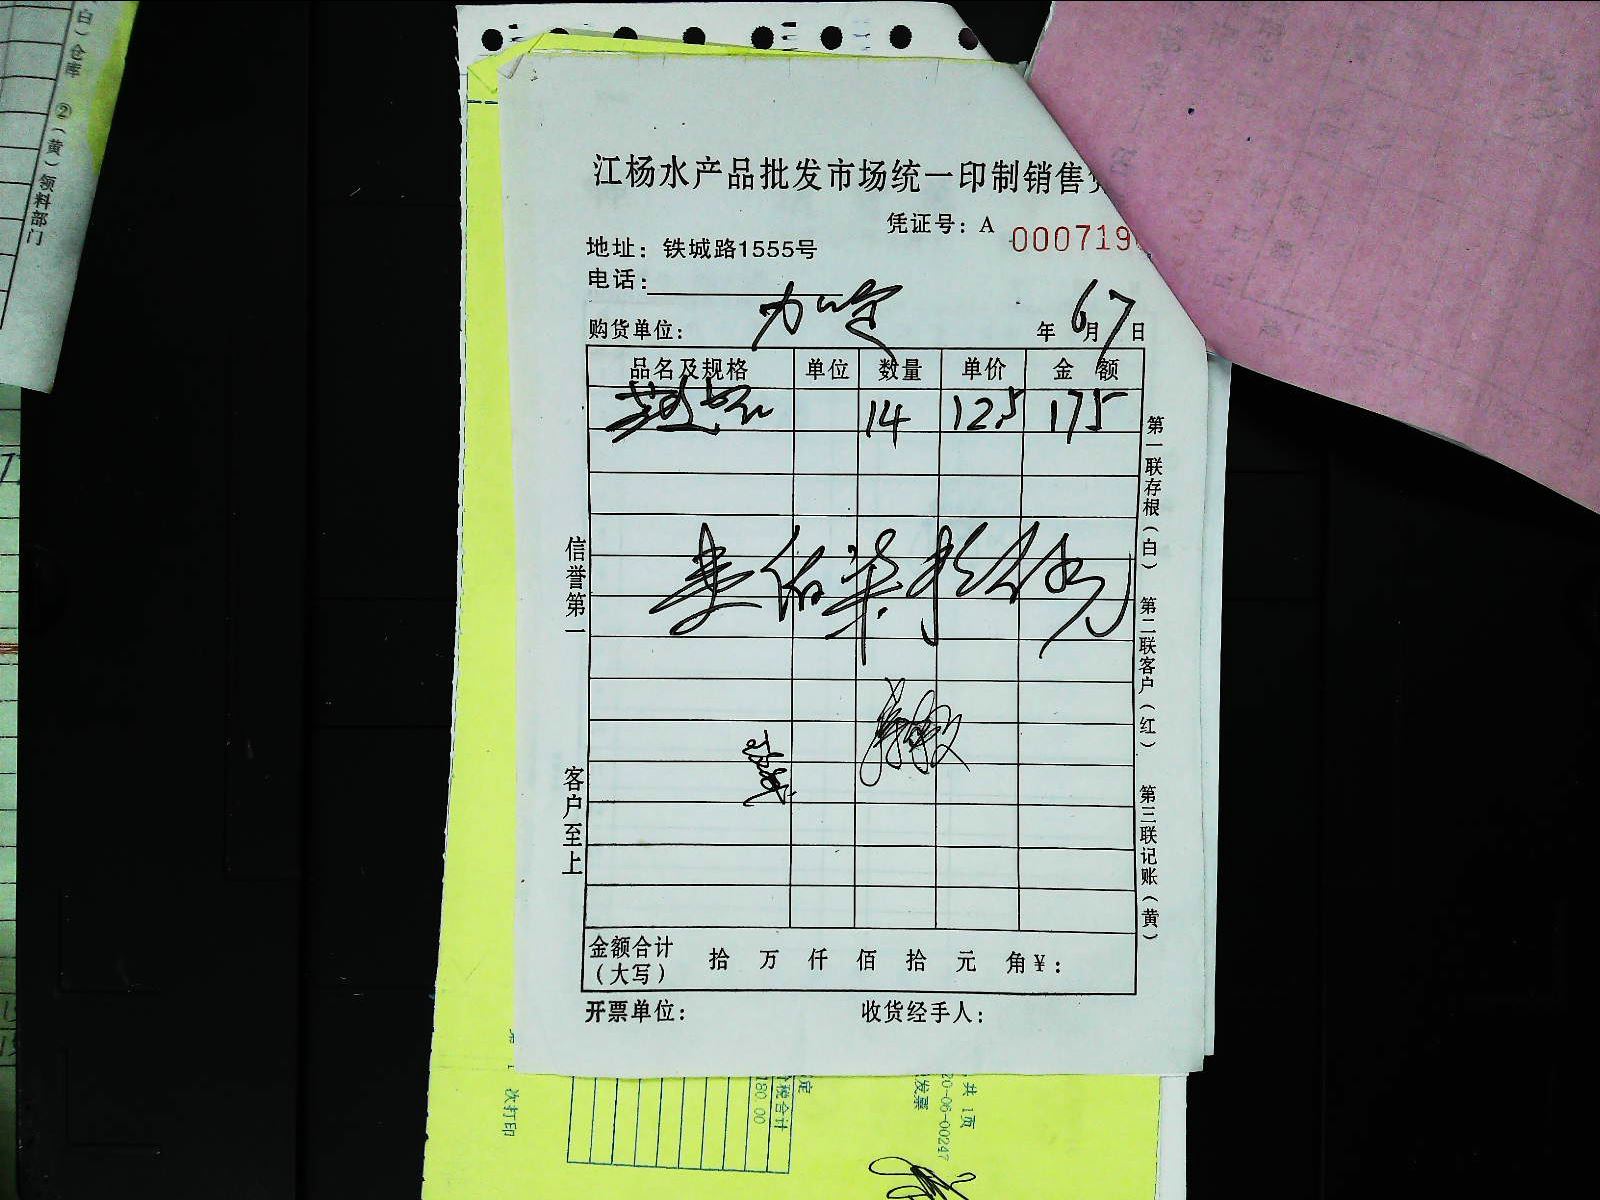 白）仓库 ②（黄）领料部门
江杨水产品批发市场统一印制销售
凭证号：A 000719
地址：铁城路1555号
电话：
购货单位： 年 6 月 7 日
品名及规格 单位 数量 单价 金 额
14 12.5 175
壹佰柒拾伍元
金额合计（大写） 拾 万 仟 佰 拾 元 角 ¥：
开票单位： 收货经手人：
信誉第一
客户至上
第一联存根（白）
第二联客户（红）
第三联记账（黄）
次打印
税合计
180.00
共 1页
20-06-00247
发票